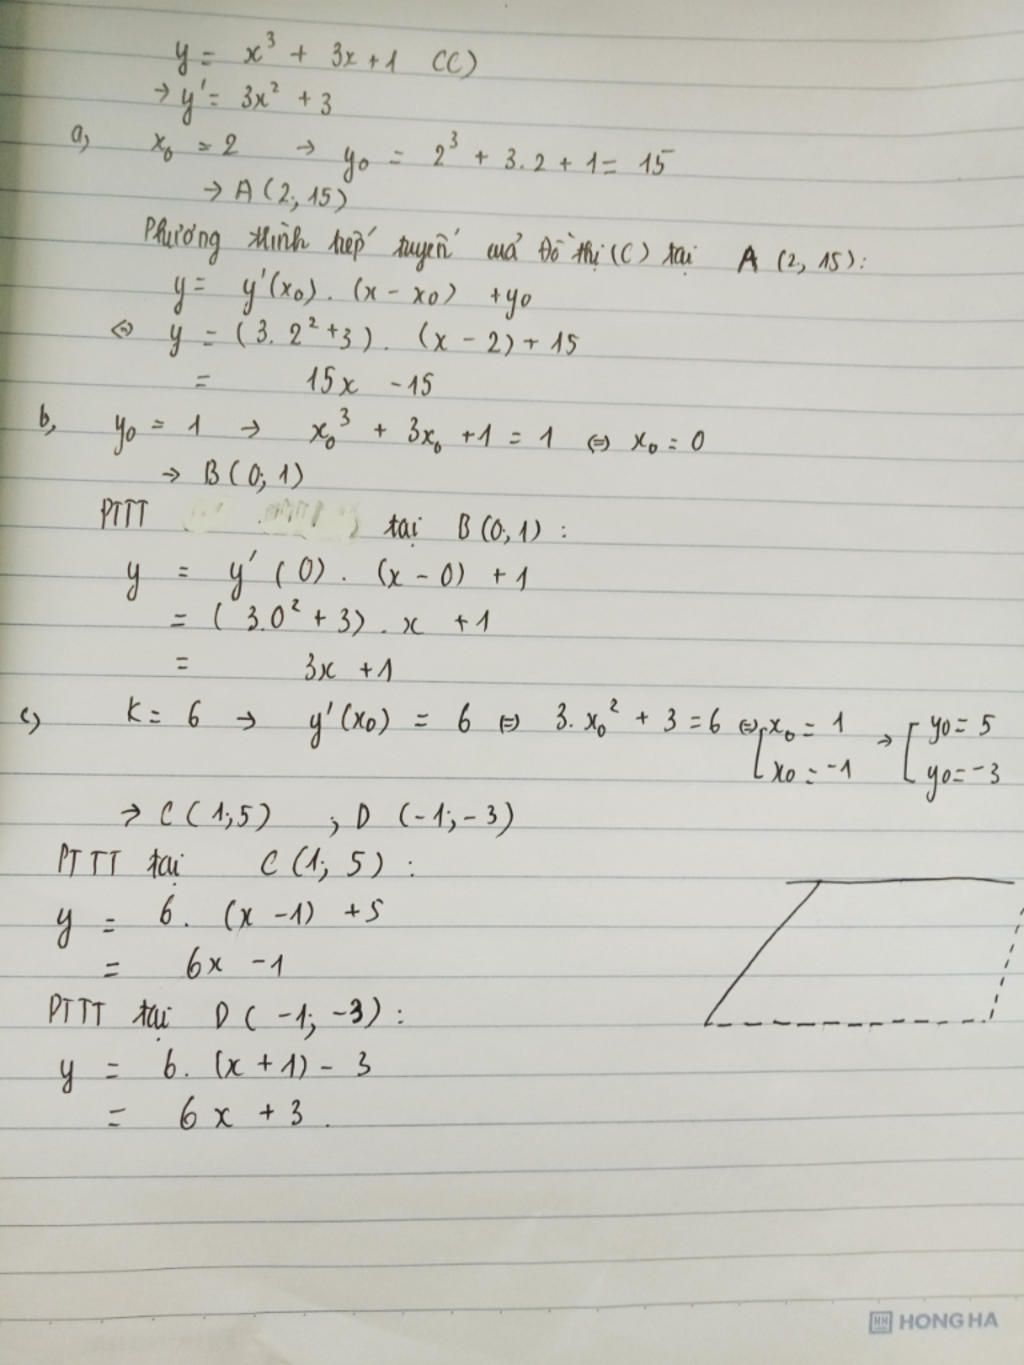 y = x³ + 3x + 1 (C)
→ y' = 3x² + 3
a, x₀ = 2 → y₀ = 2³ + 3.2 + 1 = 15
→ A (2; 15)
Phương trình tiếp tuyến của Đồ thị (C) tại A (2, 15):
y = y'(x₀). (x - x₀) + y₀
⇔ y = (3. 2² + 3). (x - 2) + 15
= 15x - 15
b, y₀ = 1 → x₀³ + 3x₀ + 1 = 1 ⇔ x₀ = 0
→ B (0; 1)
PTTT tại B (0, 1):
y = y' (0). (x - 0) + 1
= (3.0² + 3). x + 1
= 3x + 1
c) K = 6 → y'(x₀) = 6 ⇔ 3. x₀² + 3 = 6 ⇔ [x₀ = 1 → [y₀ = 5
x₀ = -1 y₀ = -3
→ C (1; 5) ; D (-1; -3)
PTTT tại C (1; 5):
y = 6. (x - 1) + 5
= 6x - 1
PTTT tại D (-1; -3):
y = 6. (x + 1) - 3
= 6x + 3.
HH HONG HA